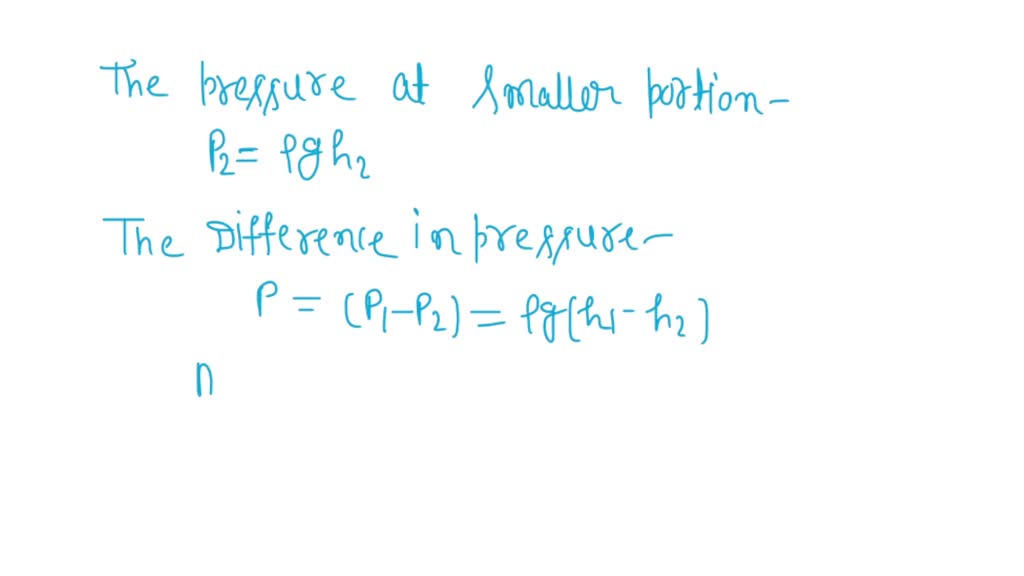 The pressure at smaller portion-
P₂= ρgh₂
The Difference in pressure-
P = (P₁-P₂) = ρg(h₁-h₂)
n